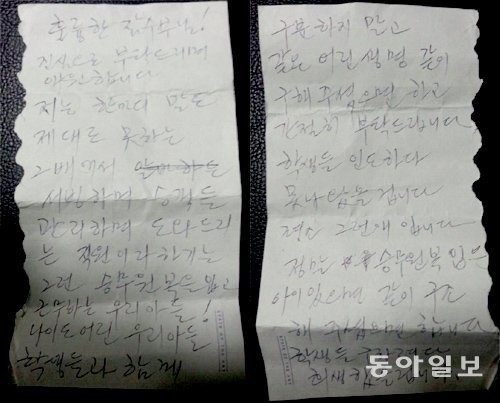 훌륭한 잠수부님!
진심으로 부탁드리며
애원합니다
저는 한마디 말도
제대로 못하는
그 배에서
서빙하며 승객들
관리하며 도와드리
는 직원이라 하기는
그런 승무원복을 입고
근무하는 우리아들!
나이도 어린 우리아들
학생들과 함께
구분하지 말고
같은 어린생명 같이
구해주셨으면 하고
간절히 부탁드립니다
학생들 인도하다
못나왔을 겁니다
평소 그런애 입니다
정말 승무원복 입은
아이 있으면 같이 구조
해 주셨으면 합니다
학생들
희생
동아일보